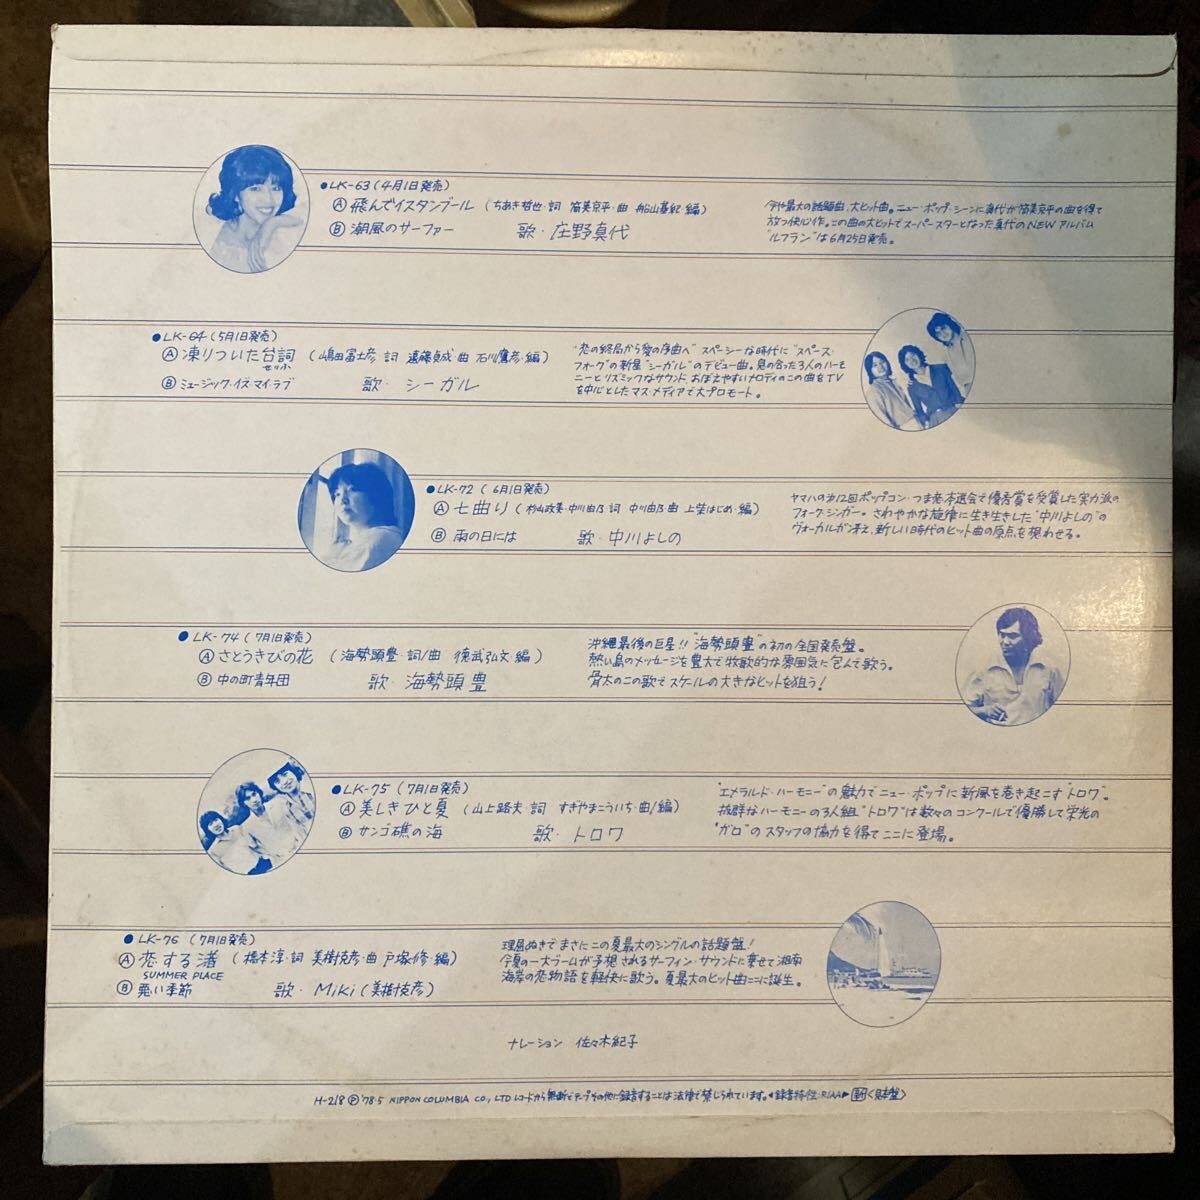 ●LK-63(4月1日発売)
Ⓐ 飛んでイスタンブール (ちあき哲也・詞 筒美京平・曲 船山基紀・編)
Ⓑ 潮風のサーファー 歌・庄野真代
今や最大の話題曲、大ヒット曲。ニュー・ポップ・シーンに真代が筒美京平の曲を得て
放つ快心作。この曲の大ヒットでスーパースターとなった真代のNEWアルバム
"ルフラン"は6月25日発売。
●LK-64(5月1日発売)
Ⓐ 凍りついた台詞 (嶋田富士彦 詞 遠藤貞成 曲 石川鷹彦・編)
せりふ
Ⓑ ミュージック・イズ・マイ・ラブ 歌・シーガル
"恋の終局から愛の序曲へ" スペーシーな時代に"スペース・
フォーク"の新星"シーガル"のデビュー曲。息の合った3人のハーモ
ニーとリズミックなサウンド、おぼえやすいメロディのこの曲をTV
を中心としたマス・メディアで大プロモート。
●LK-72(6月1日発売)
Ⓐ 七曲り (杉山政美・中川由乃 詞 中川由乃 曲 上柴はじめ・編)
Ⓑ 雨の日には 歌・中川よしの
ヤマハの第12回ポップコン・つま恋本選会で優秀賞を受賞した実力派の
フォーク・シンガー。さわやかな旋律に生き生きした"中川よしの"の
ヴォーカルが冴え、新しい時代のヒット曲の原点を想わせる。
●LK-74(7月1日発売)
Ⓐ さとうきびの花 (海勢頭豊・詞/曲 徳武弘文 編)
Ⓑ 中の町青年団 歌・海勢頭 豊
沖縄最後の巨星!!"海勢頭豊"の初の全国発売盤。
熱い島のメッセージを豊大で牧歌的な雰囲気に包んで歌う。
骨太のこの歌でスケールの大きなヒットを狙う!
●LK-75(7月1日発売)
Ⓐ 美しきひと夏 (山上路夫・詞 すぎやまこういち・曲/編)
Ⓑ サンゴ礁の海 歌・トロワ
"エメラルド・ハーモニー"の魅力でニュー・ポップに新風を巻き起こす"トロワ"。
抜群なハーモニーの3人組"トロワ"は数々のコンクールで優勝して栄光の
"ガロ"のスタッフの協力を得てここに登場。
●LK-76(7月1日発売)
Ⓐ 恋する渚 (橋本淳・詞 美樹克彦・曲 戸塚修 編)
SUMMER PLACE
Ⓑ 悪い季節 歌・Miki(美樹克彦)
理屈ぬきでまさにこの夏最大のシングルの話題盤!
今夏の一大ブームが予想されるサーフィン・サウンドに乗せて湘南
海岸の恋物語を軽快に歌う。夏最大のヒット曲ここに誕生。
ナレーション 佐々木紀子
H-218 Ⓟ'78・5 NIPPON COLUMBIA CO., LTD レコードから無断でテープその他に録音することは法律で禁じられています。◀録音特性:RIAA▶ <見本盤>